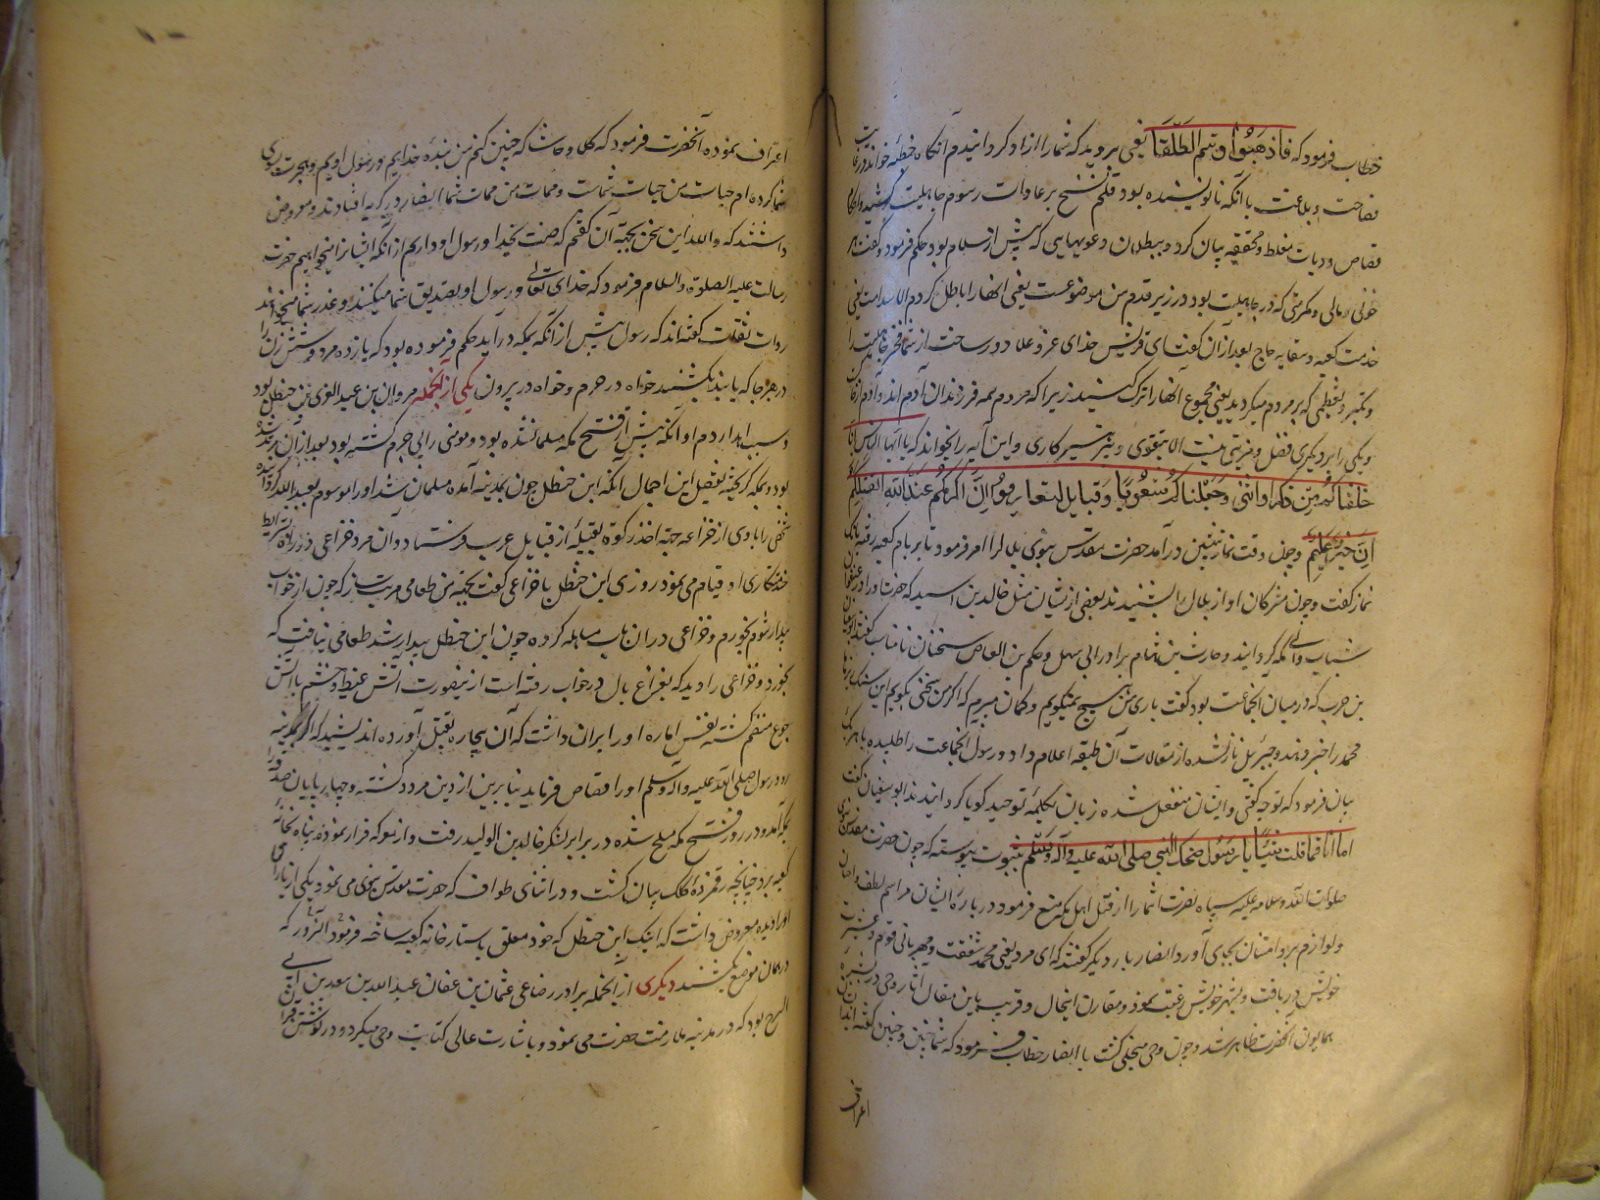 خطاب فرمود که فاذهبوا وانتم الطلقا یعنی بروید که شما را آزاد گردانیدم آنگاه خطبه خواند در غایت
فصاحت و بلاغت با آنکه نانویسنده بود قلم نسخ بر عادات رسوم جاهلیت کشید و احکام
قصاص و دیات مغلظ و محققه بیان کرد و ببطلان دعویهایی که پیش از اسلام بود حکم فرمود و گفت هر
خونی و مالی و مکرمتی که در جاهلیت بود در زیر قدم من موضوعست یعنی آنها را باطل کردم الا سدانت یعنی
خدمت کعبه و سقایه حاج بعد از آن گفت ای قریش خدای عز و علا دور ساخت از شما فخر جاهلیت را
و تکبر و تعظمی که بر مردم میکردید یعنی مجموع آنها را ترک کنید زیرا که مردم همه فرزندان آدم اند و آدم از خاک
و یکی را بر دیگری فضل و مزیتی نیست الا بتقوی و پرهیزکاری و این آیه را بخواند که یا ایها الناس انا
خلقناکم من ذکر او انثی و جعلناکم شعوبا و قبایل لتعارفوا ان اکرمکم عند الله اتقیکم
ان خبیر علیم و چون وقت نماز پیشین درآمد حضرت مقدس نبوی بلال را امر فرمود تا بر بام کعبه رفته بانک
نماز گفت و چون مشرکان آواز بلال را شنیدند بعضی از یشان مثل خالد بن اسید که حضرت او را در عنفوان
شباب والی مکه گردانید و حارث بن هشام برادر ابی جهل و حکم بن العاص سخنان نامناسب گفتند ابوسفیان
بن حرب که در میان انجماعت بود گفت باری من هیچ نمیگویم و گمان میبرم که اگر من سخنی بگویم این سنک ریزها
محمد را خبر دهند و جبرئیل نازل شده از مقالات آن طبقه اعلام داد و رسول انجماعت را طلبیده با هر یک
بیان فرمود که تو چه گفتی و ایشان منفعل شده زبان بکلمه توحید گویا گردانیدند ابوسفیان گفت
اما انا فما قلت شیئا یا رسول الله ضحک النبی صلی الله علیه و آله و سلم بثبوت پیوسته که چون حضرت مقدس نبوی
صلوات الله و سلامه علیه سپاه نصرت انتما را از قتل اهل مکه منع فرمود در باره ایشان مراسم لطف و احسان
و لوازم بر و امتنان بجای آورد انصار با یکدیگر گفتند که ای مرد یعنی محمد شفقت و مهربانی قوم و عشیرت
خویش دریافت و بشهر خویش رغبت نمود و مقارن اینحال و قریب باین مقال آثار وحی در بشره
همایون آنحضرت ظاهر شد و چون وحی منجلی گشت با انصار خطاب فرمود که شما چنین و چنین گفته اید ایشان
اعتراف
اعتراف نموده آنحضرت فرمود که کلا و حاشا که چنین کنم من بنده خدایم و رسول اویم و هجرت بسوی
شما کرده ام حیات من حیات شماست و ممات من ممات شما انصار در گریه افتادند و معروض
داشتند که والله این سخن بجهة آن گفتیم که ضنت بخدا و رسول او داریم از آنکه ایشانرا نخواهیم حضرت
رسالت علیه الصلوة والسلام فرمود که خدای تعالی و رسول او تصدیق شما میکنند و عذر شما میخواهند
روات ثقات گفته اند که رسول پیش از آنکه بمکه درآید حکم فرموده بود که یازده مرد و شش زن را
در هر جا که یابند بکشند خواه در حرم و خواه در بیرون یکی از انجمله مروان بن عبد العزی بن حنظل بود
و سبب اهدار دم او آنکه پیش از فتح مکه مسلمان شده بود و مومنی را بی جرم کشته بود بعد ازان مرتد شده
بود و بمکه گریخته تفصیل این اجمال آنکه ابن حنظل چون بمدینه آمده مسلمان شد او را موسوم بعبدالله گردانیده
شخصی را با وی از خزاعه جهة اخذ زکوة بقبیله از قبایل عرب فرستاد و آن مرد خزاعی در راه بشرایط
خدمتکاری او قیام می نمود روزی ابن حنظل با خزاعی گفت بجهة من طعامی مرتب ساز که چون از خواب
بیدار شوم بخورم و خزاعی در ان باب مساهله کرده چون ابن حنظل بیدار شد طعامی نیافت که
بخورد و خزاعی را دید که بفراغ بال در خواب رفته است از نیصورت آتش غیظ و خشم با آتش
جوع منضم گشته نفس اماره او را بران داشت که آن بیچاره بقتل آورده اندیشید که اگر بمدینه
رود رسول صلی الله علیه و آله و سلم او را قصاص فرماید بنابرین از دین مرد گشته و چهارپایان صدقه را
بمکه آمد و در روز فتح مکه مسلح شده در برابر لشکر خالد بن الولید رفت و از معرکه فرار نموده پناه بخانه
کعبه برد چنانچه رقمزده کلک بیان گشت و در اثنای طواف که حضرت مقدس نبوی می نمود یکی از یاران
او را دیده معروض داشت که اینک ابن حنظل که خود معلق باستار خانه کعبه ساخته فرمود آنسرور که
در همان موضع بکشند دیگری از انجمله برادر رضاعی عثمان بن عفان عبد الله بن سعد بن ابی
السرح بود که در مدینه ملازمت حضرت می نمود و باشارت عالی کتابت وحی میکرد و در نوشتن قرآن